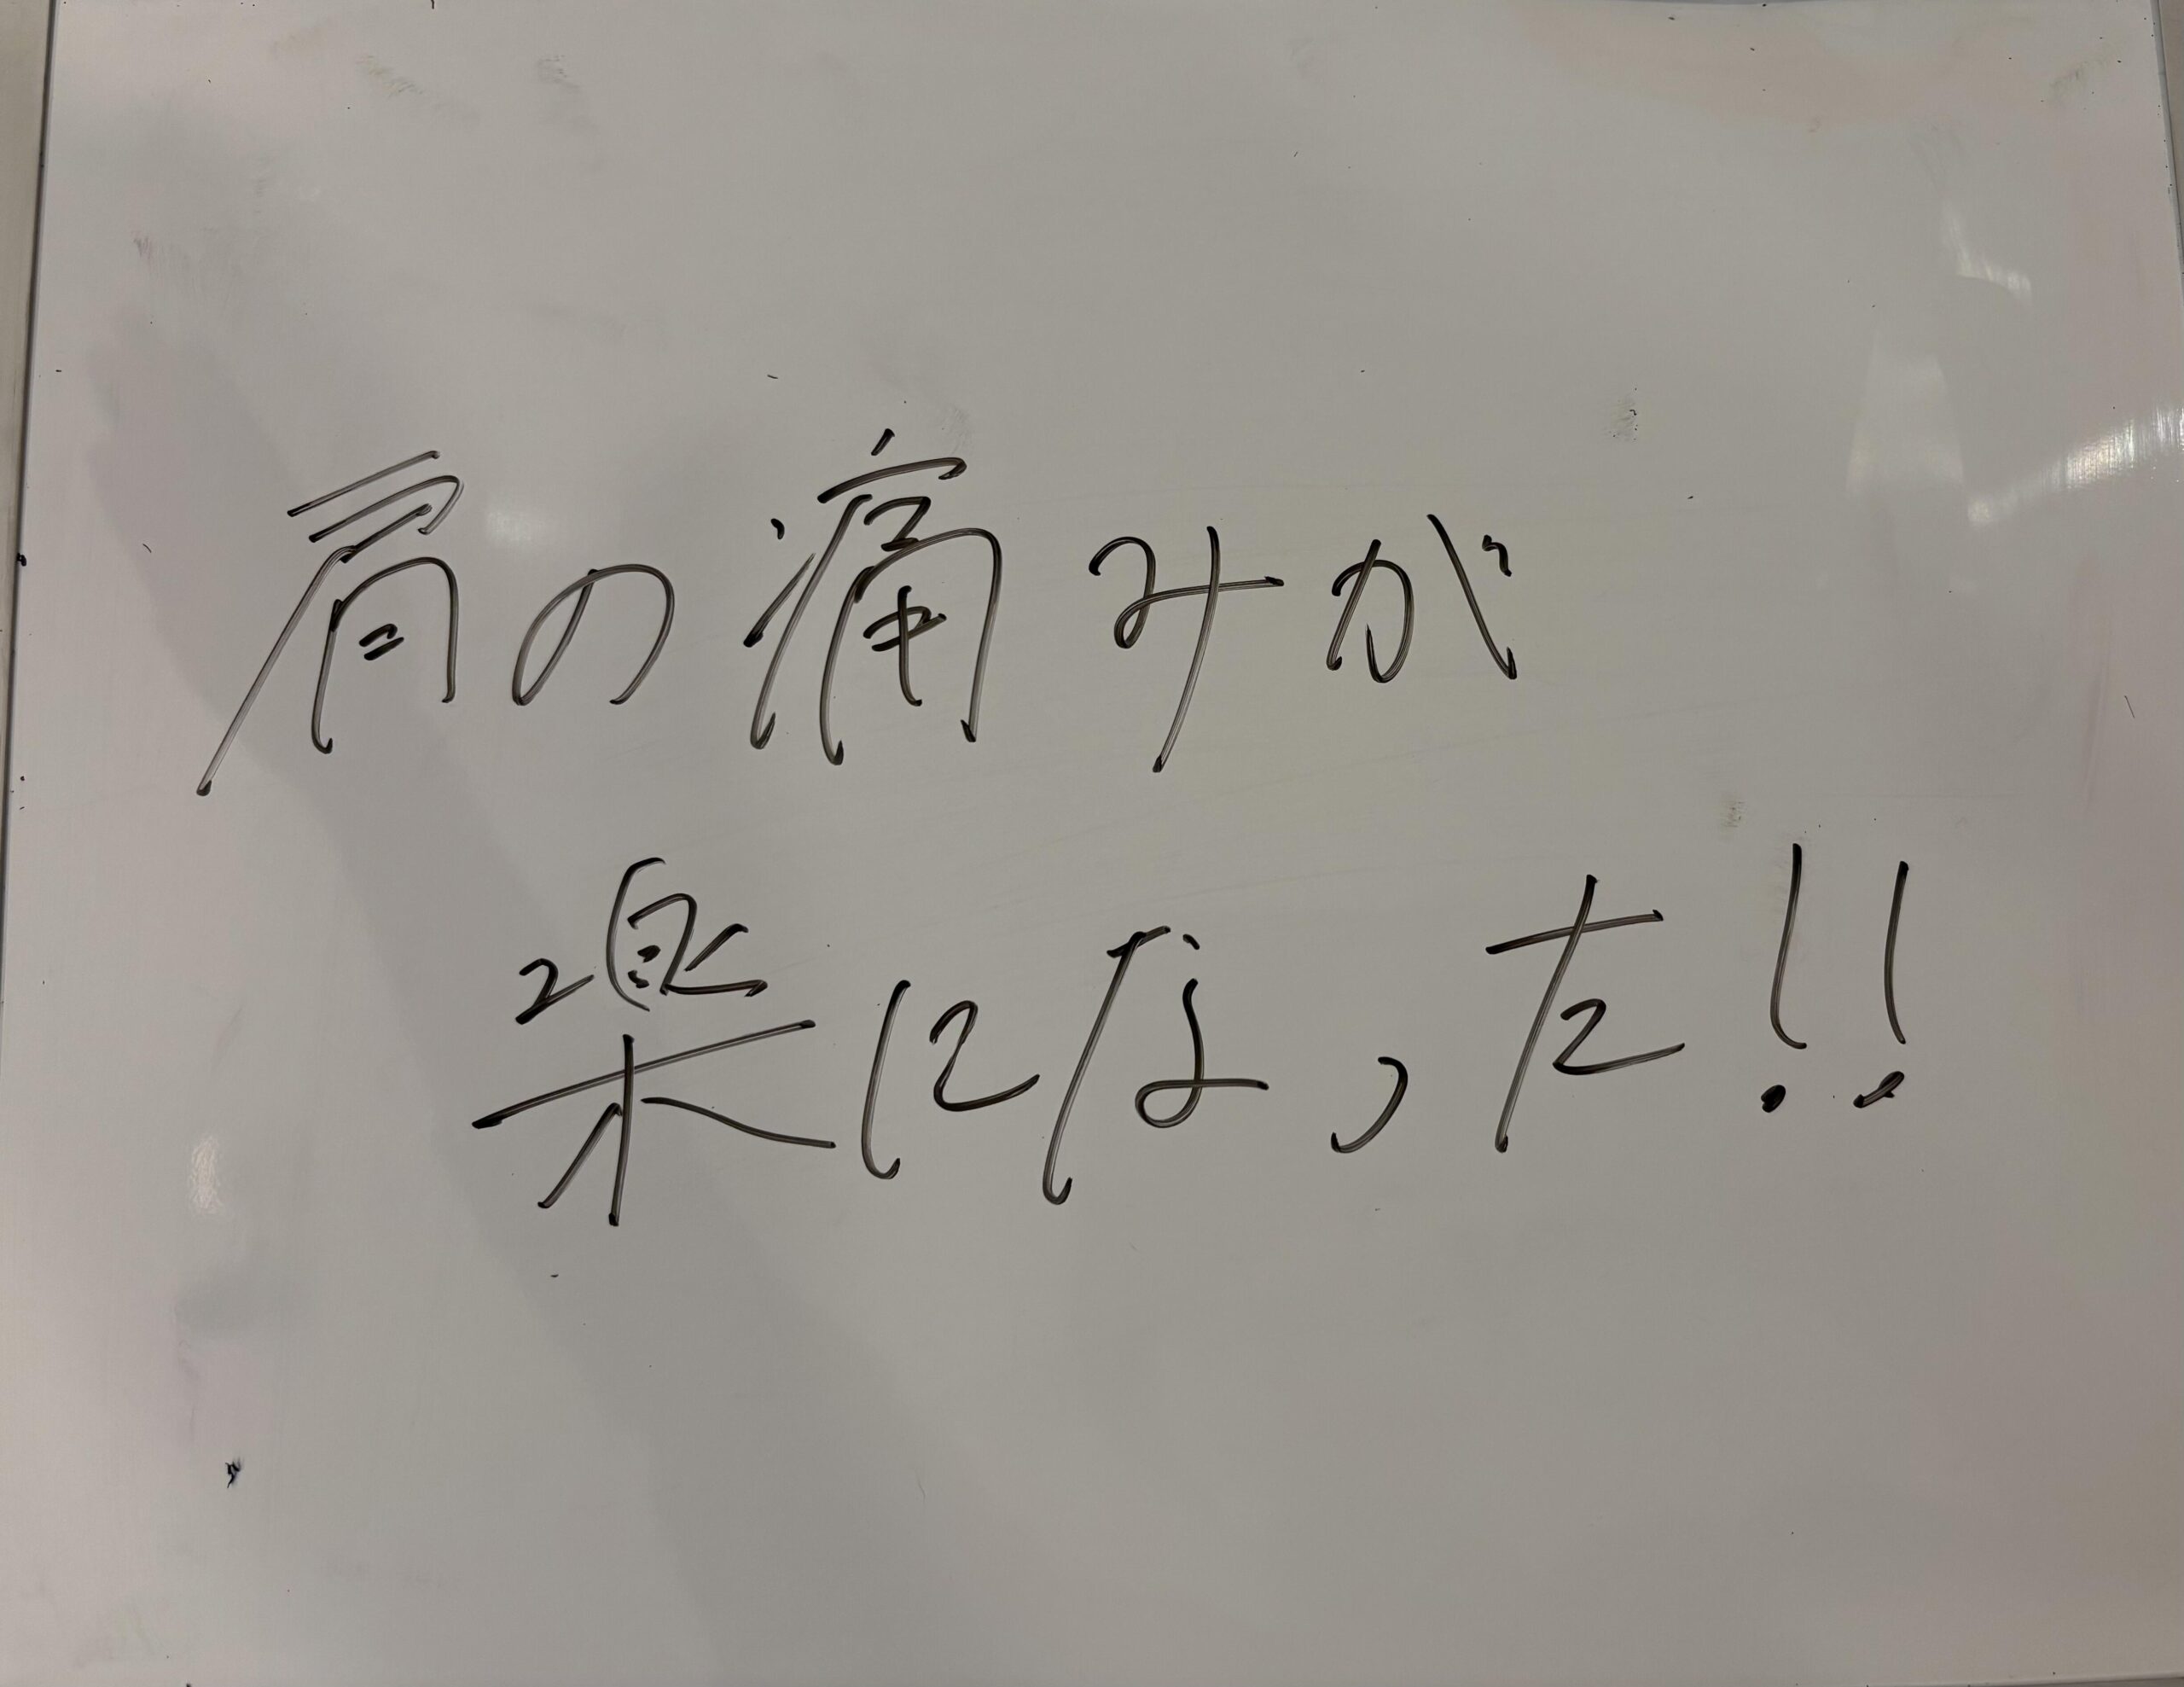 肩の痛みが
楽になった!!